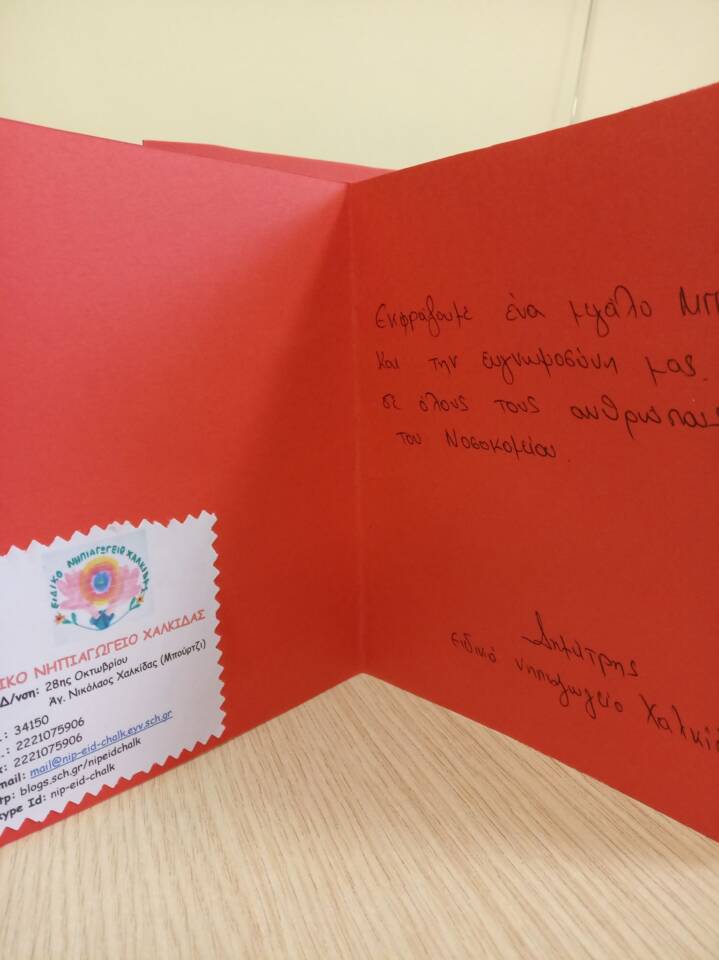 ΕΙΔΙΚΟ ΝΗΠΙΑΓΩΓΕΙΟ ΧΑΛΚΙΔΑΣ
ΙΚΟ ΝΗΠΙΑΓΩΓΕΙΟ ΧΑΛΚΙΔΑΣ
Δ/νση: 28ης Οκτωβρίου
Άγ. Νικόλαος Χαλκίδας (Μπούρτζι)
.: 34150
.: 2221075906
: 2221075906
mail: mail@nip-eid-chalk.eyv.sch.gr
tp: blogs.sch.gr/nipeidchalk
kype Id: nip-eid-chalk
Εκφράζουμε ένα μεγάλο ΜΠ
και την ευγνωμοσύνη μας
σε όλους τους ανθρώπους
του Νοσοκομείου.
Δημήτρης
Ειδικό νηπιαγωγείο Χαλκί